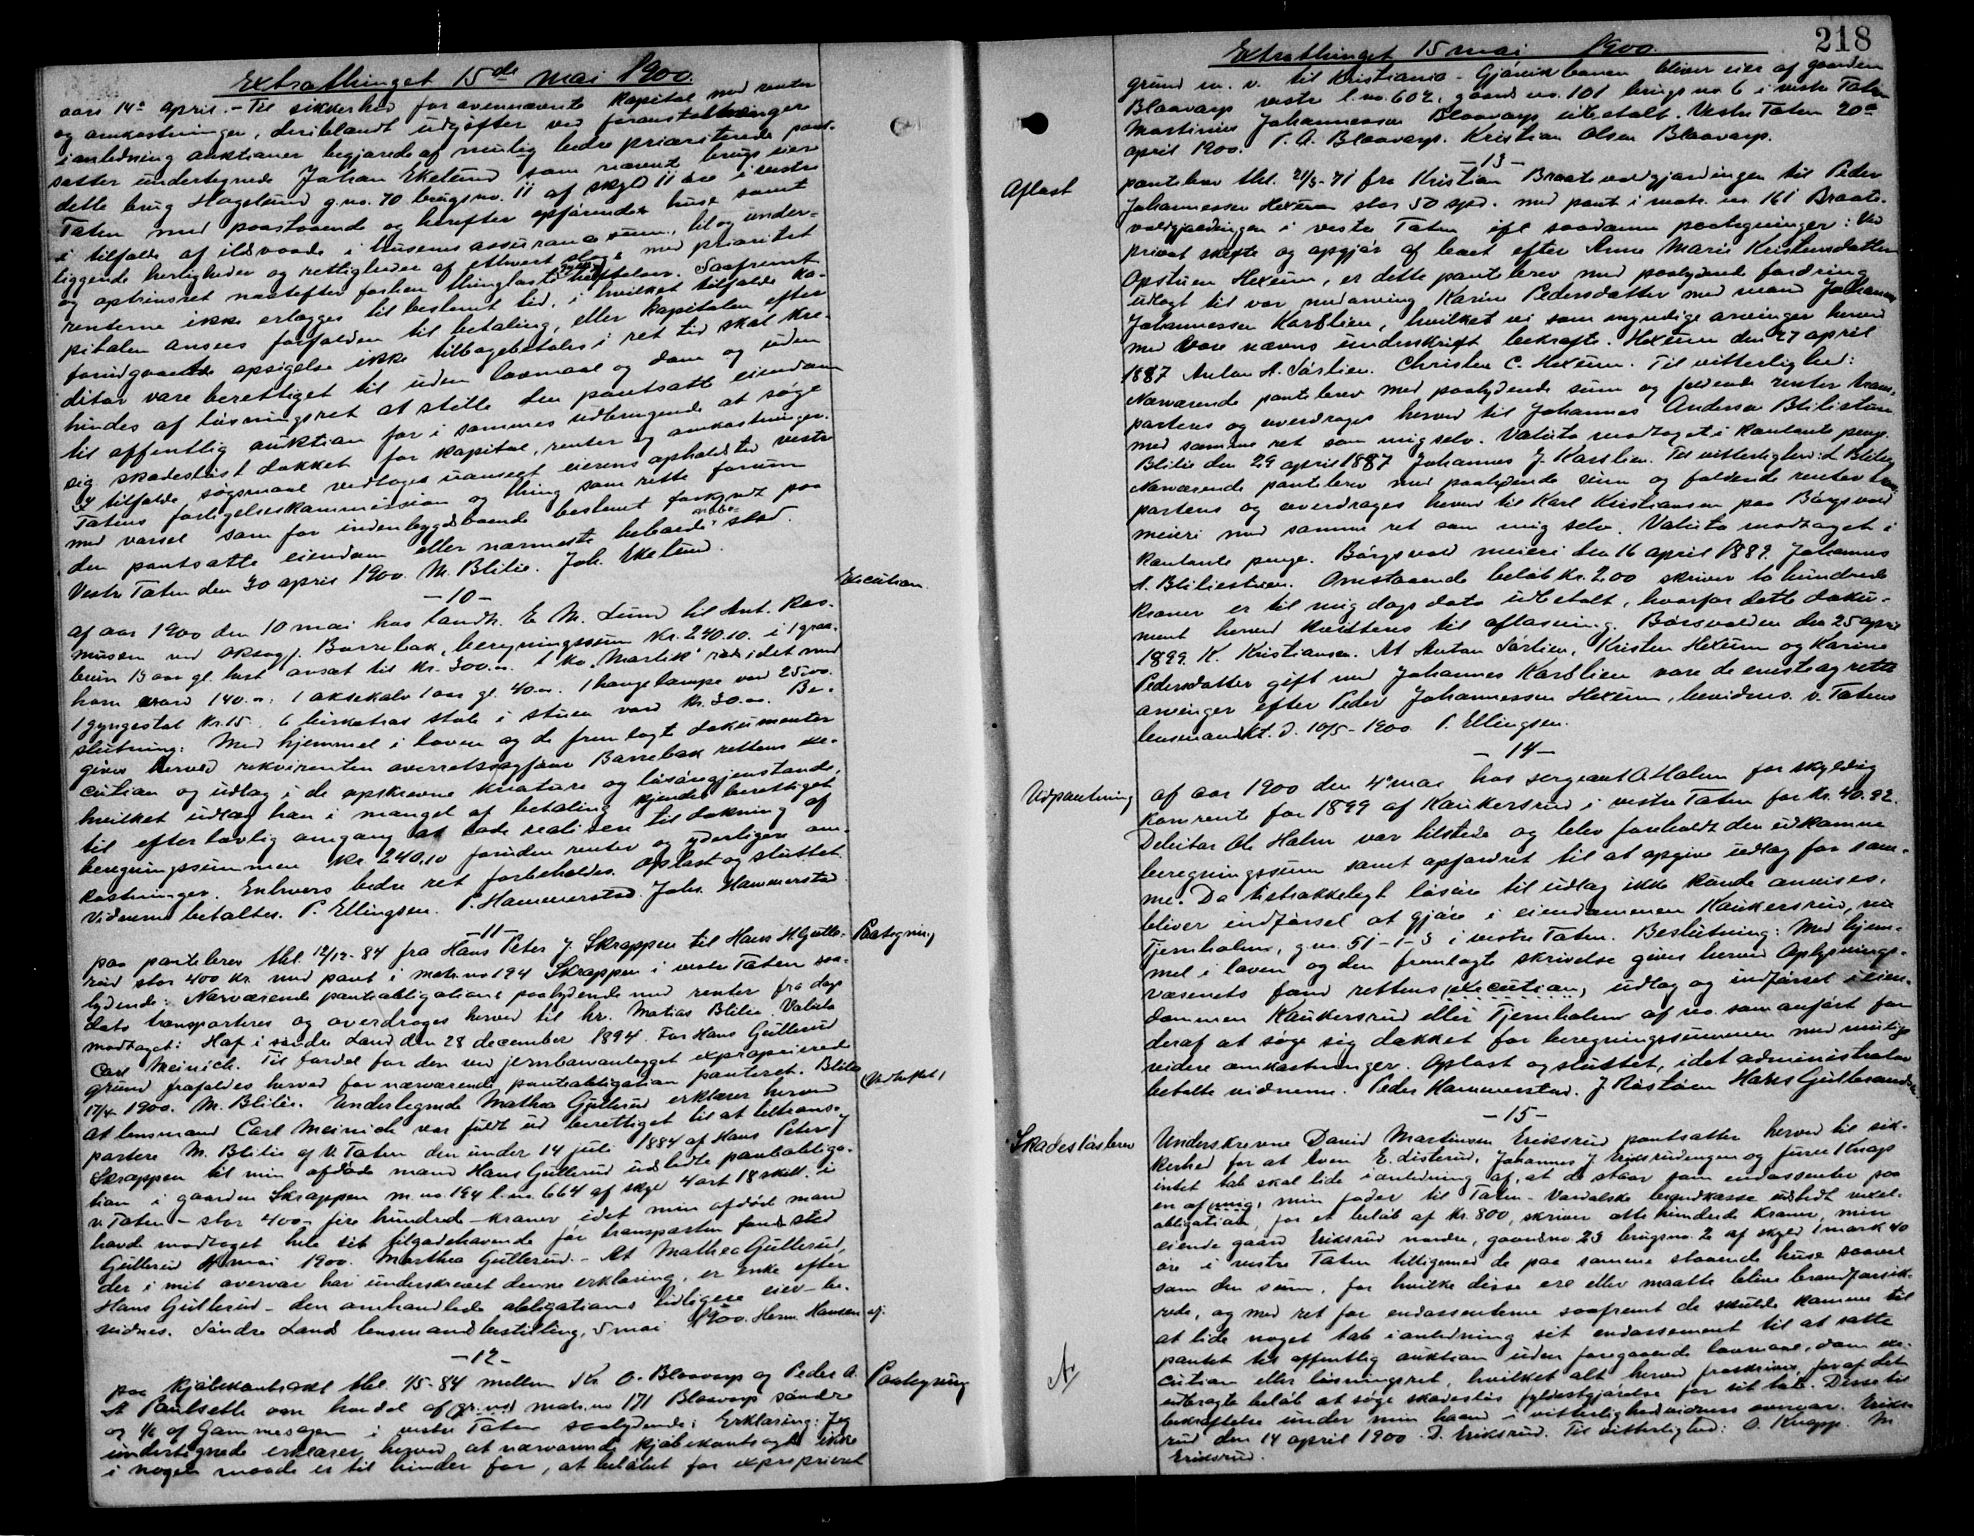 Extrathinget 15de mai 1900.
aars 14de april. - Til sikkerhed for ovennævnte kapital med renter
og omkostninger, deriblandt udgifter ved foranstaltninger
i anledning auktioner begjærede af mulig bedre prioriterede pant-
satter undertegnede Johan Ekelund som nævnt brugs eier
dette brug Hagelund g.no. 70 brugsno. 11 af skyld 11 øre i vestre
Toten med paastaaende og herefter opførendes huse samt
i tilfælde af ildsvaade i husenes assurancesum, til og under-
liggende herligheder og rettigheder af ethvert slags med prioritet
og optrinsret næstefter forhen thinglæste heftelser. Saafremt
renterne ikke erlægges til bestemt tid, i hvilket tilfælde ka-
pitalen ansees forfalden til betaling, eller kapitalen efter
forudgaaende opsigelse ikke tilbagebetales i ret tid skal kre-
ditor være berettiget til uden lovmaal og dom og uden
hindes af løsningsret at stille den pantsatte eiendom
til offentlig auktion for i sammes udbringende at søge
sig skadesløst dækket for kapital, renter og omkostninger.
I tilfælde søgsmaal vedtages uanseet eierens opholdsted vestre
Totens forligelseskommission og thing som rette forum
med varsel som for indenbygdsboende bestemt forkyndt paa
den pantsatte eiendom eller nærmeste beboede sted.
Vestre Toten den 30 april 1900. M. Blilie. Joh. Ekelund.
- 10 -
Execution.
af aar 1900 den 10 mai hos landh. E. M. Lund til Ant. Ras-
musen ved oksagf. Borrebæk, beregningssum kr. 240.10. i 1 graa-
brun 13 aar gl. hest ansat til kr. 300.00. 1 ko "Marlik" rødsidet med
horn værd 140.00: 1 oksekalv 1 aar gl. 40.00. 1 hængelampe værd 25.00.
1 gyngestol kr. 15. 6 birketræs stole i stuen værd kr. 30.00. Be-
slutning: Med hjemmel i loven og de fremlagte dokumenter
gives herved rekvirenten overretssagfører Borrebæk rettens exe-
cution og udlæg i de opskrevne kreature og løsøregjenstande,
hvilket udlæg han i mangel af betaling kjendes berettiget
til efter lovlig omgang at lade realisere til dækning af
beregningssummen kr. 240,10 foruden renter og yderligere om-
kostninger. Enhvers bedre ret forbeholdes. Oplæst og sluttet.
Vidnerne betaltes. P. Ellingsen. P. Hammerstad. Johs. Hammerstad.
- 11 -
Paategning
paa pantebrev thl. 12/12-84 fra Hans Peter J. Skrappen til Hans H. Gulle-
rud stor 400 kr. med pant i matr. no 194 Skrappen i vestre Toten saa-
lydende: Nærværende pantobligations paalydende med renter fra dags
dato transporteres og overdrages herved til hr. Matias Blilie. Valuta
modtaget: Hof i søndre Land den 28 december 1894. For Hans Gullerud
Carl Meinich. Til fordel for den ved jernbaneanlægget exproprierede
grund frafaldes herved for nærværende pantobligation panteret. Blilie
17/4 1900. M. Blilie. Undertegnede Mathea Gullerud erklærer herved
at lensmand Carl Meinich var fuldt ud berettiget til at tiltrans-
portere M. Blilie af V. Toten den under 14 juli 1884 af Hans Peter J.
Skrappen til min afdøde mand Hans Gullerud udstedte pantobliga-
tion i gaarden Skrappen m.no. 194 l.no. 664 af skyld 4 ort 18 skill. i
v. Toten - stor 400,- fire hundrede - kroner, idet min afdød mand
havde modtaget hele sit tilgodehavende før transporten fandt sted
Gullerud 4 mai 1900. Marthea Gullerud. - At Mathea Gullerud,
der i mit overvær har underskrevet denne erklæring, er enke efter
Hans Gullerud - den omhandlede obligations tidligere eier - be-
vidnes. Søndre Lands lensmandsbestilling, 5 mai 1900. Herm. Hansen
- 12 -
Paategning
paa kjøbekontrakt thl. 1/5-84 mellem Kr. O. Blaavarp og Peder A.
A. Paulsette om handel af gr. ved matr. no 171 Blaavarp søndre
og 1/6 af Gammesagen i vestre Toten saalydende: Erklæring: Jeg
undertegnede erklærer herved, at nærværende kjøbekontrakt ikke
i nogen maade er til hinder for, at beløbet for exproprieret
218
Extrathinget 15 mai 1900.
grund m. v. til Kristiania - Gjøvikbanen bliver eier af gaarden
Blaavarp vestre l.no. 602, gaards no. 101 brugs no. 6 i vestre Toten
Martinius Johannessen Blaavarp udbetalt. Vestre Toten 20de
april 1900. P. A. Blaavarp. Kristian Olsen Blaavarp.
- 13 -
Aflæst
pantebrev thl. 21/3-71 fra Kristian Braatevolgjærdingen til Peder
Johannessen Hexum stor 50 spd. med pant i matr. no. 161 Braate-
volgjærdingen i vestre Toten ifl saadanne paategninger: Ved
privat skifte og opgjør af boet efter Anne Marie Kristensdatter
Opstuen Hexum, er dette pantebrev med paalydende fordring
udlagt til vor medarving Karine Pedersdatter med mand Johannes
Johannessen Karslien, hvilket vi som myndige arvinger herved
med vore navns underskrift bekræfte. Hexum den 27 april
1887 Anton A. Sørlien. Christen C. Hexum. Til vitterlighed:
Nærværende pantebrev med paalydende sum og faldende renter trans-
porteres og overdrages herved til Johannes Andersen Bliliestuen
med samme ret som mig selv. Valuta modtaget i kontante penge.
Blilie den 29 april 1887 Johannes J. Karslien. Til vitterlighed: L Blilie
Nærværende pantebrev med paalydende sum og faldende renter trans-
porteres og overdrages herved til Karl Kristiansen paa Børgsvold
meieri med samme ret som mig selv. Valuta modtaget i
kontante penge. Børgsvold meieri den 16 april 1889. Johannes
A. Bliliestuen. Omstaaende beløb kr. 200 skriver to hundrede
kroner er til mig dags dato udbetalt, hvorfor dette doku-
ment herved kvitteres til aflæsning. Børsvolden den 25 april
1899. K. Kristiansen. At Anton Sørlien, Kristen Hexum og Karine
Pedersdatter gift med Johannes Karslien vare de eneste og rette
arvinger efter Peder Johannessen Hexum, bevidnes. v. Totens
lensmandskt. d. 10/5-1900 P. Ellingsen.
- 14 -
Udpantning
af aar 1900 den 4de mai hos sergeant O. Holm for skyldig
kornrente for 1899 af Kaukersrud i vestre Toten for kr. 40.92.
Debitor Ole Holm var tilstede og blev foreholdt den udkomne
beregningssum samt opfordret til at opgive udlæg for sam-
me. Da tilstrækkeligt løsøre til udlæg ikke kunde anvises,
bliver indførsel at gjøre i eiendommen Kaukersrud, nu
Tjernholm, g.no. 51-1-3 i vestre Toten. Beslutning: Med hjem-
mel i loven og den fremlagte skrivelse gives herved Oplysnings-
væsenets fond rettens (execution) udlæg og indførsel i eien-
dommen Kaukersrud eller Tjernholm af no. som anført for
deraf at søge sig dækket for beregningssummen med mulige
videre omkostninger. Oplæst og sluttet, idet administrator
betalte vidnerne. Peder Hammerstad. J. Røstøen Hans Gullerud
- 15 -
Skadesløsbrev
Underskrevne David Martinsen Eriksrud pantsætter herved til sik-
kerhed for at Even E. Disterud, Johannes J. Eriksrudengen og Juul Knap
intet tab skal lide i anledning af, at de staar som endossenter paa
en af mig, min fader til Toten - Vardalske brandkasse udstedt vexel-
obligation, for et beløb af kr. 800, skriver otte hundrede kroner, min
eiende gaard Eriksrud nordre, gaardno. 23 brugsno. 2 af skyld 1 mark 40
øre i vestre Toten tilligemed de paa samme staaende huse saavel
som den sum, for hvilke disse ere eller maatte blive brandforsik-
rede, og med ret for endossenterne saafremt de skulde komme til
at lide noget tab i anledning sit endossement til at sætte
pantet til offentlig auktion uden foregaaende lovmaal, dom exe-
cution eller løsningsret, hvilket alt herved fraskrives, for af det
udbragte beløb at søge skadesløs fyldestgjørelse for sit tab. Dette til
bekræftelse under min haand i vitterlighedsvidners overvær. Eriks-
rud den 14 april 1900. D. Eriksrud. Til vitterlighed: O. Knapp. M
Eriksrud.